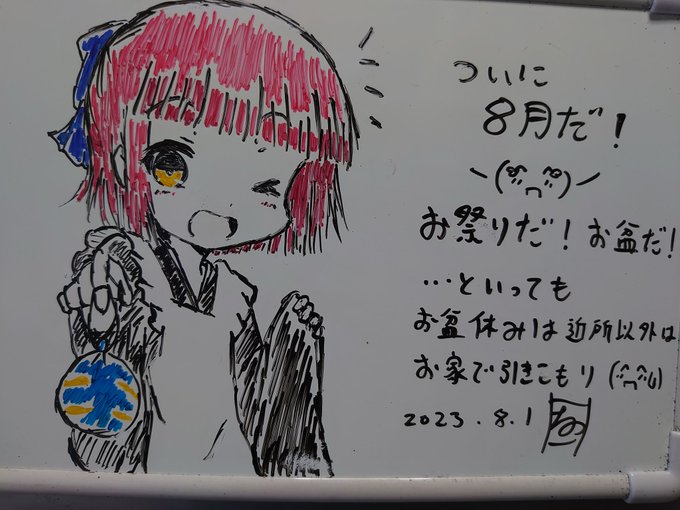 ついに
8月だ！
＼(^^⌒^^)／
お祭りだ！お盆だ！
…といっても
お盆休みは近所以外は
お家で引きこもり(^⌒^;)
2023.8.1